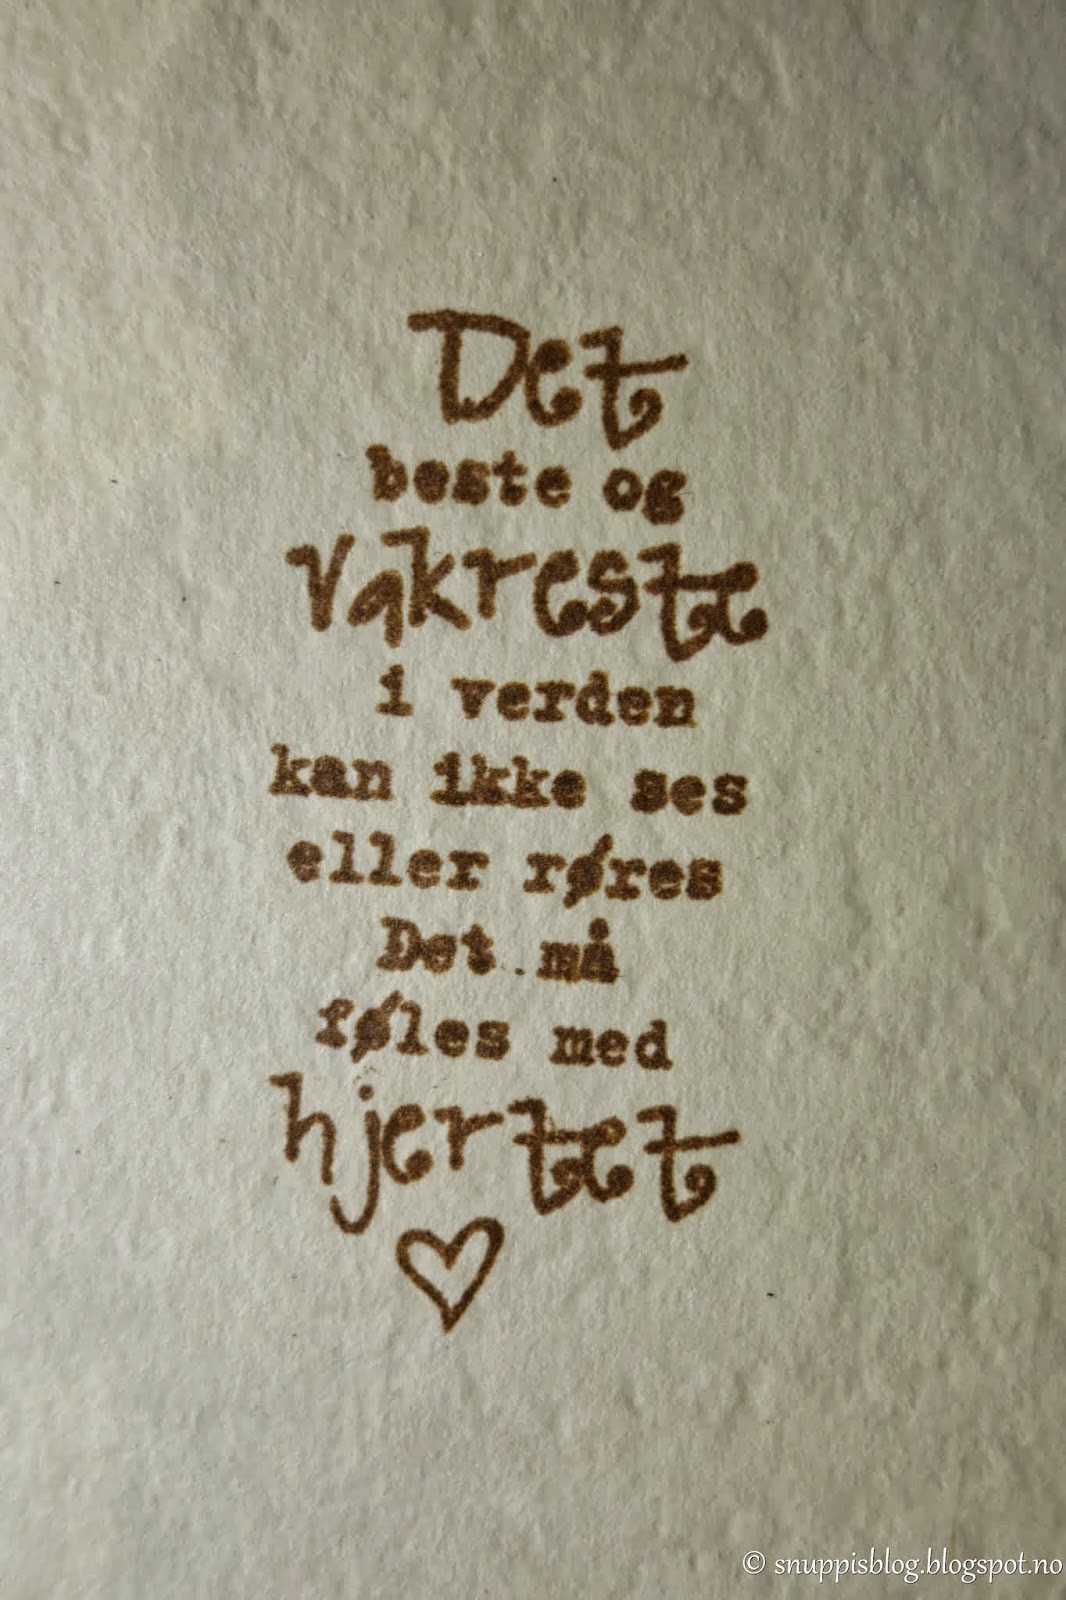 Det
beste og
vakreste
i verden
kan ikke ses
eller røres
Det må
føles med
hjertet
© snuppisblog.blogspot.no